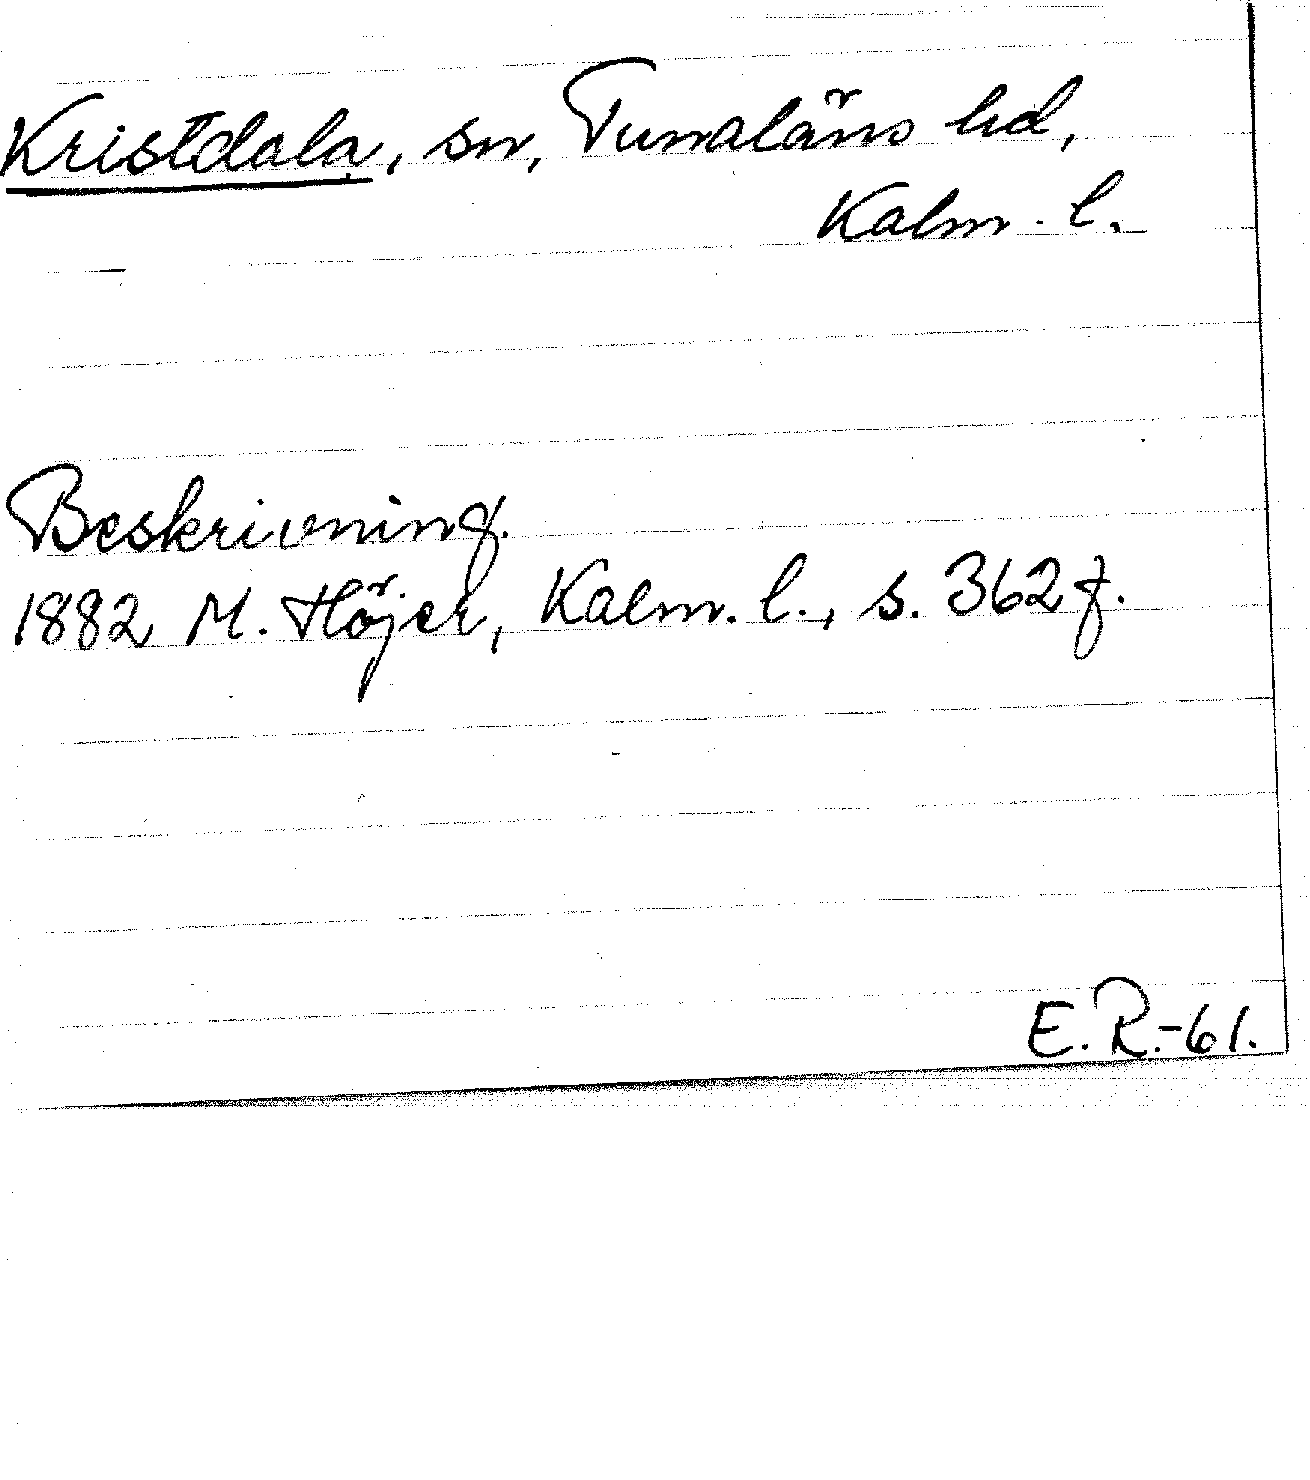 Kristdala, sn, Tunaläns hd,
Kalm. l.
Beskrivning.
1882 M. Höjer, Kalm. l., s. 362 f.
E.R.-61.